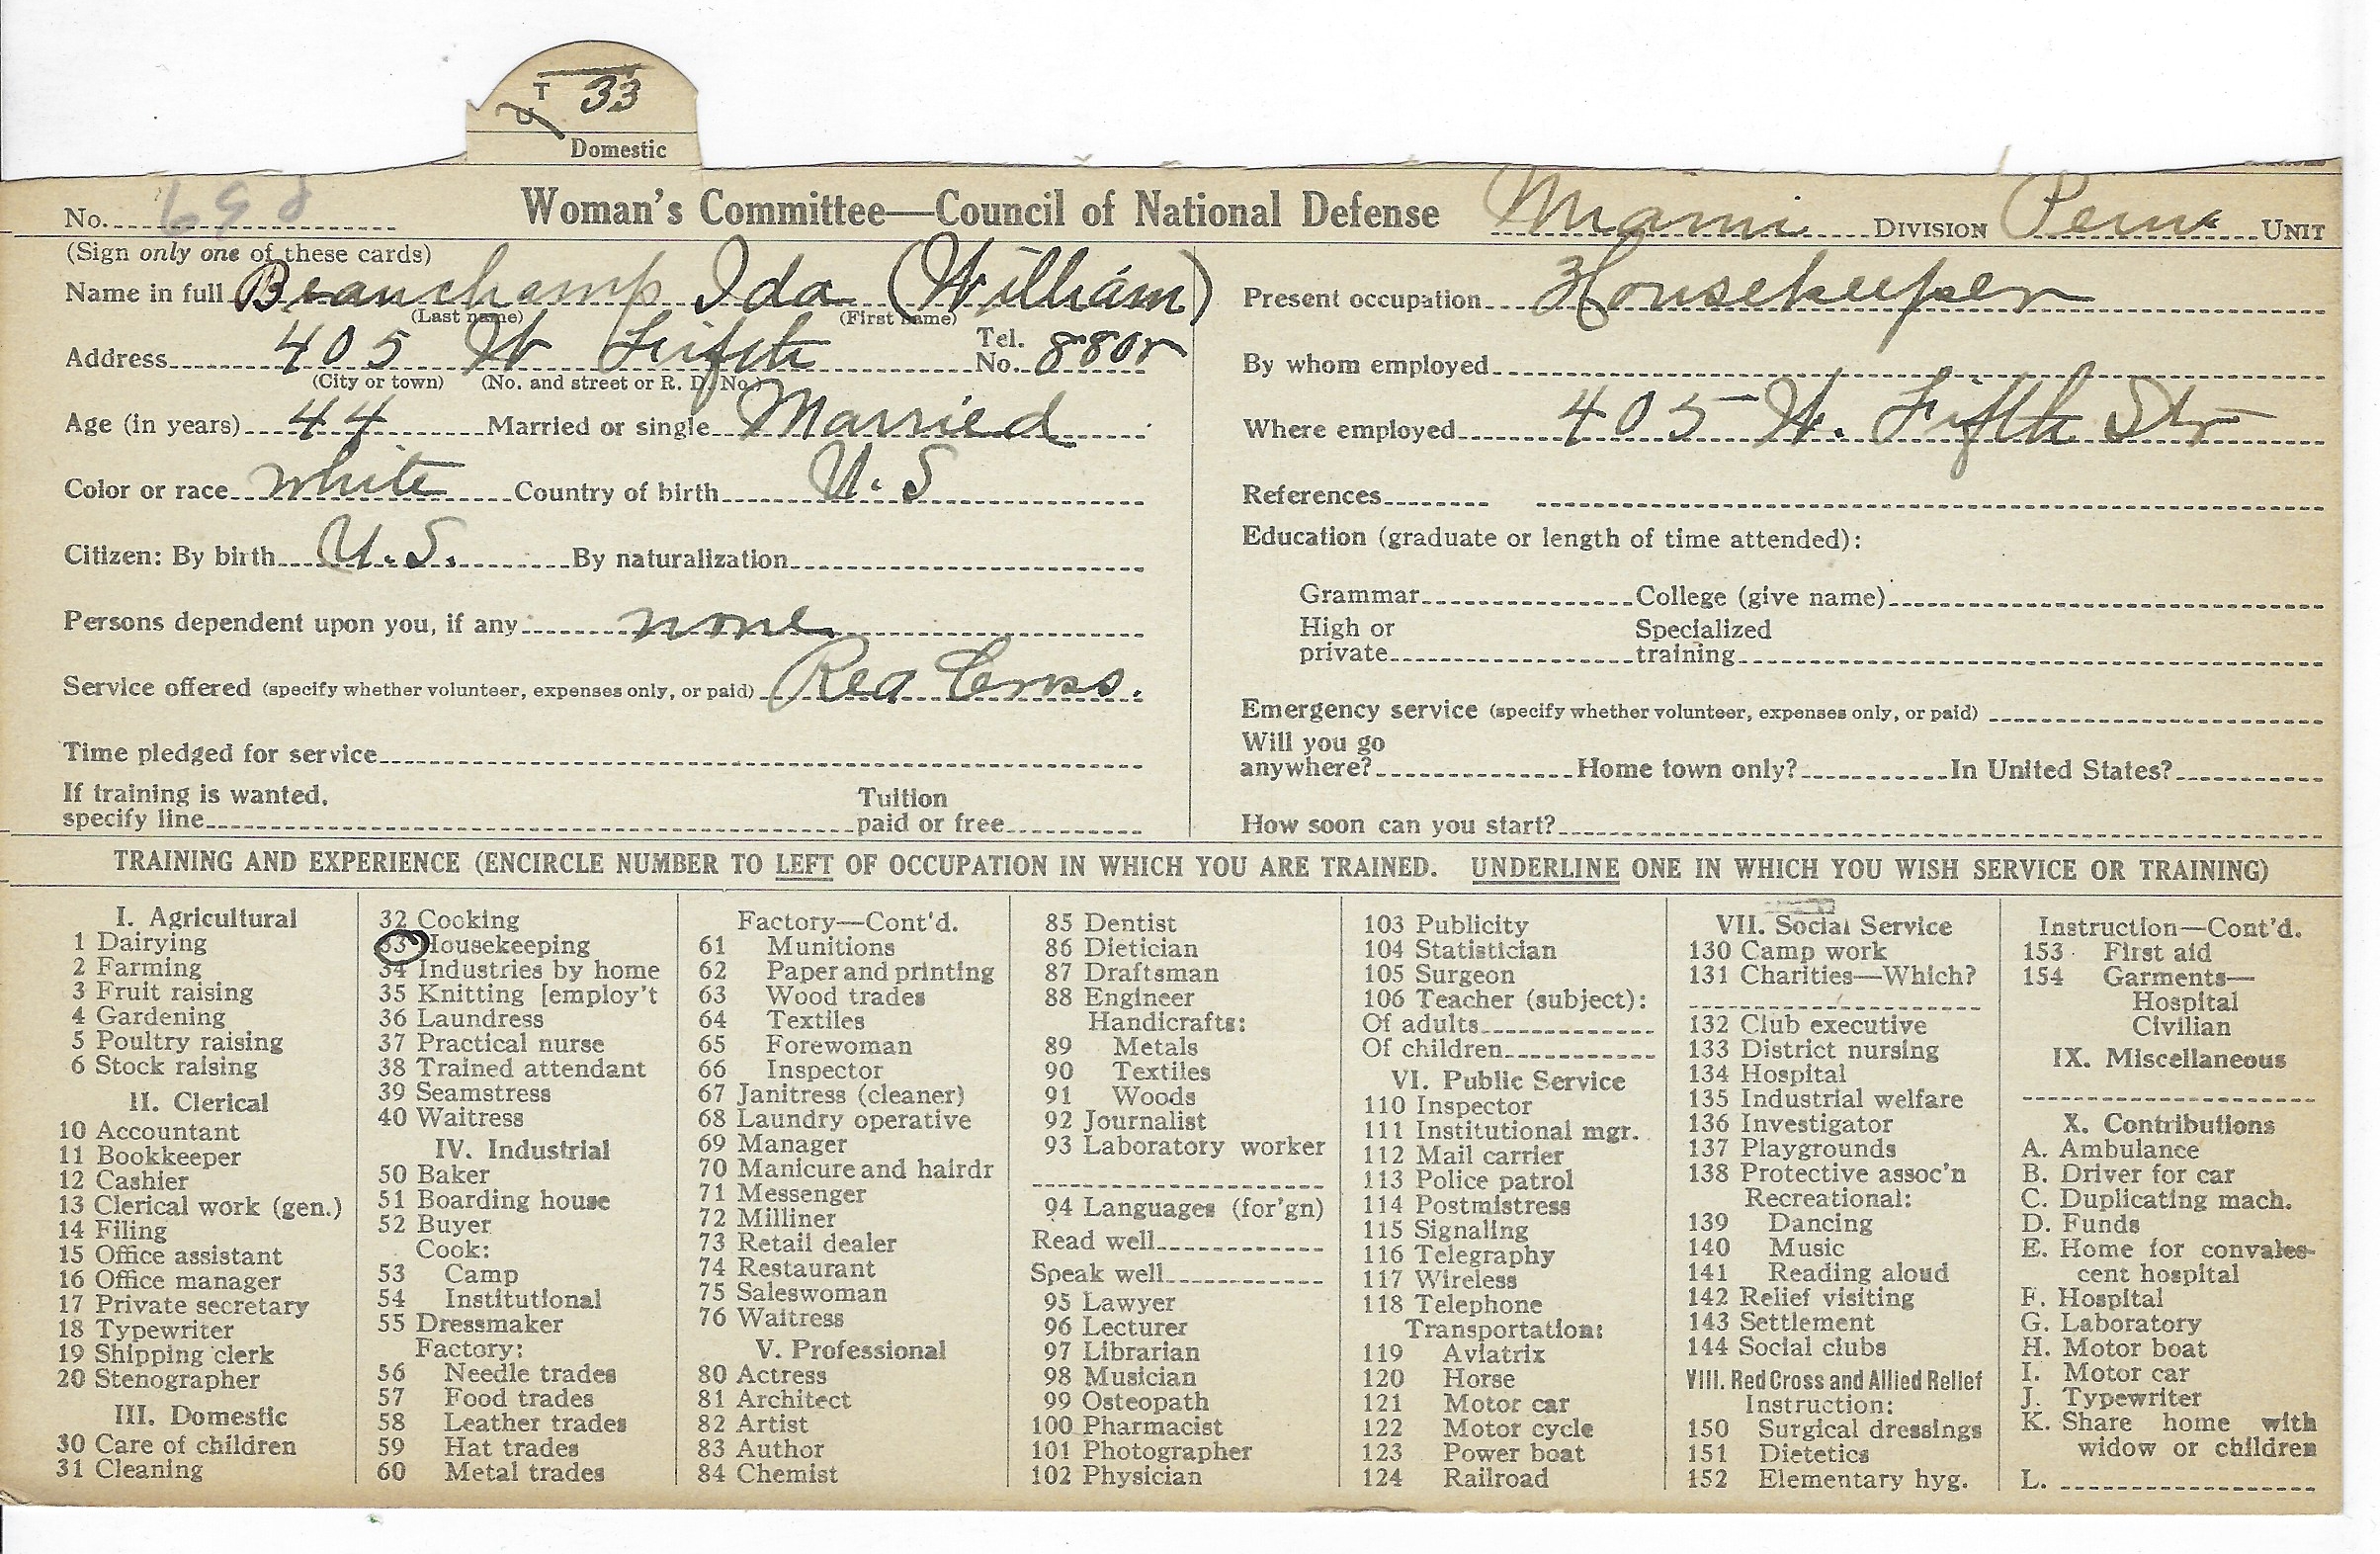 T 33
U
Domestic
No. 698 Woman's Committee—Council of National Defense Miami DIVISION Peru UNIT
(Sign only one of these cards)
Name in full Beauchamp Ida (William)
(Last name) (First name)
Address 405 W Fifth Tel. No. 880r
(City or town) (No. and street or R. D. No.)
Age (in years) 44 Married or single Married
Color or race white Country of birth U. S
Citizen: By birth U. S. By naturalization
Persons dependent upon you, if any none
Service offered (specify whether volunteer, expenses only, or paid) Red Cross.
Time pledged for service
If training is wanted, specify line Tuition paid or free
Present occupation Housekeeper
By whom employed
Where employed 405 W. Fifth Str
References
Education (graduate or length of time attended):
Grammar College (give name)
High or private Specialized training
Emergency service (specify whether volunteer, expenses only, or paid)
Will you go anywhere? Home town only? In United States?
How soon can you start?
TRAINING AND EXPERIENCE (ENCIRCLE NUMBER TO LEFT OF OCCUPATION IN WHICH YOU ARE TRAINED. UNDERLINE ONE IN WHICH YOU WISH SERVICE OR TRAINING)
I. Agricultural
1 Dairying
2 Farming
3 Fruit raising
4 Gardening
5 Poultry raising
6 Stock raising
II. Clerical
10 Accountant
11 Bookkeeper
12 Cashier
13 Clerical work (gen.)
14 Filing
15 Office assistant
16 Office manager
17 Private secretary
18 Typewriter
19 Shipping clerk
20 Stenographer
III. Domestic
30 Care of children
31 Cleaning
32 Cooking
33 Housekeeping
34 Industries by home
35 Knitting [employ't
36 Laundress
37 Practical nurse
38 Trained attendant
39 Seamstress
40 Waitress
IV. Industrial
50 Baker
51 Boarding house
52 Buyer
Cook:
53 Camp
54 Institutional
55 Dressmaker
Factory:
56 Needle trades
57 Food trades
58 Leather trades
59 Hat trades
60 Metal trades
Factory—Cont'd.
61 Munitions
62 Paper and printing
63 Wood trades
64 Textiles
65 Forewoman
66 Inspector
67 Janitress (cleaner)
68 Laundry operative
69 Manager
70 Manicure and hairdr
71 Messenger
72 Milliner
73 Retail dealer
74 Restaurant
75 Saleswoman
76 Waitress
V. Professional
80 Actress
81 Architect
82 Artist
83 Author
84 Chemist
85 Dentist
86 Dietician
87 Draftsman
88 Engineer
Handicrafts:
89 Metals
90 Textiles
91 Woods
92 Journalist
93 Laboratory worker
94 Languages (for'gn)
Read well
Speak well
95 Lawyer
96 Lecturer
97 Librarian
98 Musician
99 Osteopath
100 Pharmacist
101 Photographer
102 Physician
103 Publicity
104 Statistician
105 Surgeon
106 Teacher (subject):
Of adults
Of children
VI. Public Service
110 Inspector
111 Institutional mgr.
112 Mail carrier
113 Police patrol
114 Postmistress
115 Signaling
116 Telegraphy
117 Wireless
118 Telephone
Transportation:
119 Aviatrix
120 Horse
121 Motor car
122 Motor cycle
123 Power boat
124 Railroad
VII. Social Service
130 Camp work
131 Charities—Which?
132 Club executive
133 District nursing
134 Hospital
135 Industrial welfare
136 Investigator
137 Playgrounds
138 Protective assoc'n
Recreational:
139 Dancing
140 Music
141 Reading aloud
142 Relief visiting
143 Settlement
144 Social clubs
VIII. Red Cross and Allied Relief
Instruction:
150 Surgical dressings
151 Dietetics
152 Elementary hyg.
Instruction—Cont'd.
153 First aid
154 Garments—
Hospital
Civilian
IX. Miscellaneous
X. Contributions
A. Ambulance
B. Driver for car
C. Duplicating mach.
D. Funds
E. Home for convales-
cent hospital
F. Hospital
G. Laboratory
H. Motor boat
I. Motor car
J. Typewriter
K. Share home with
widow or children
L.